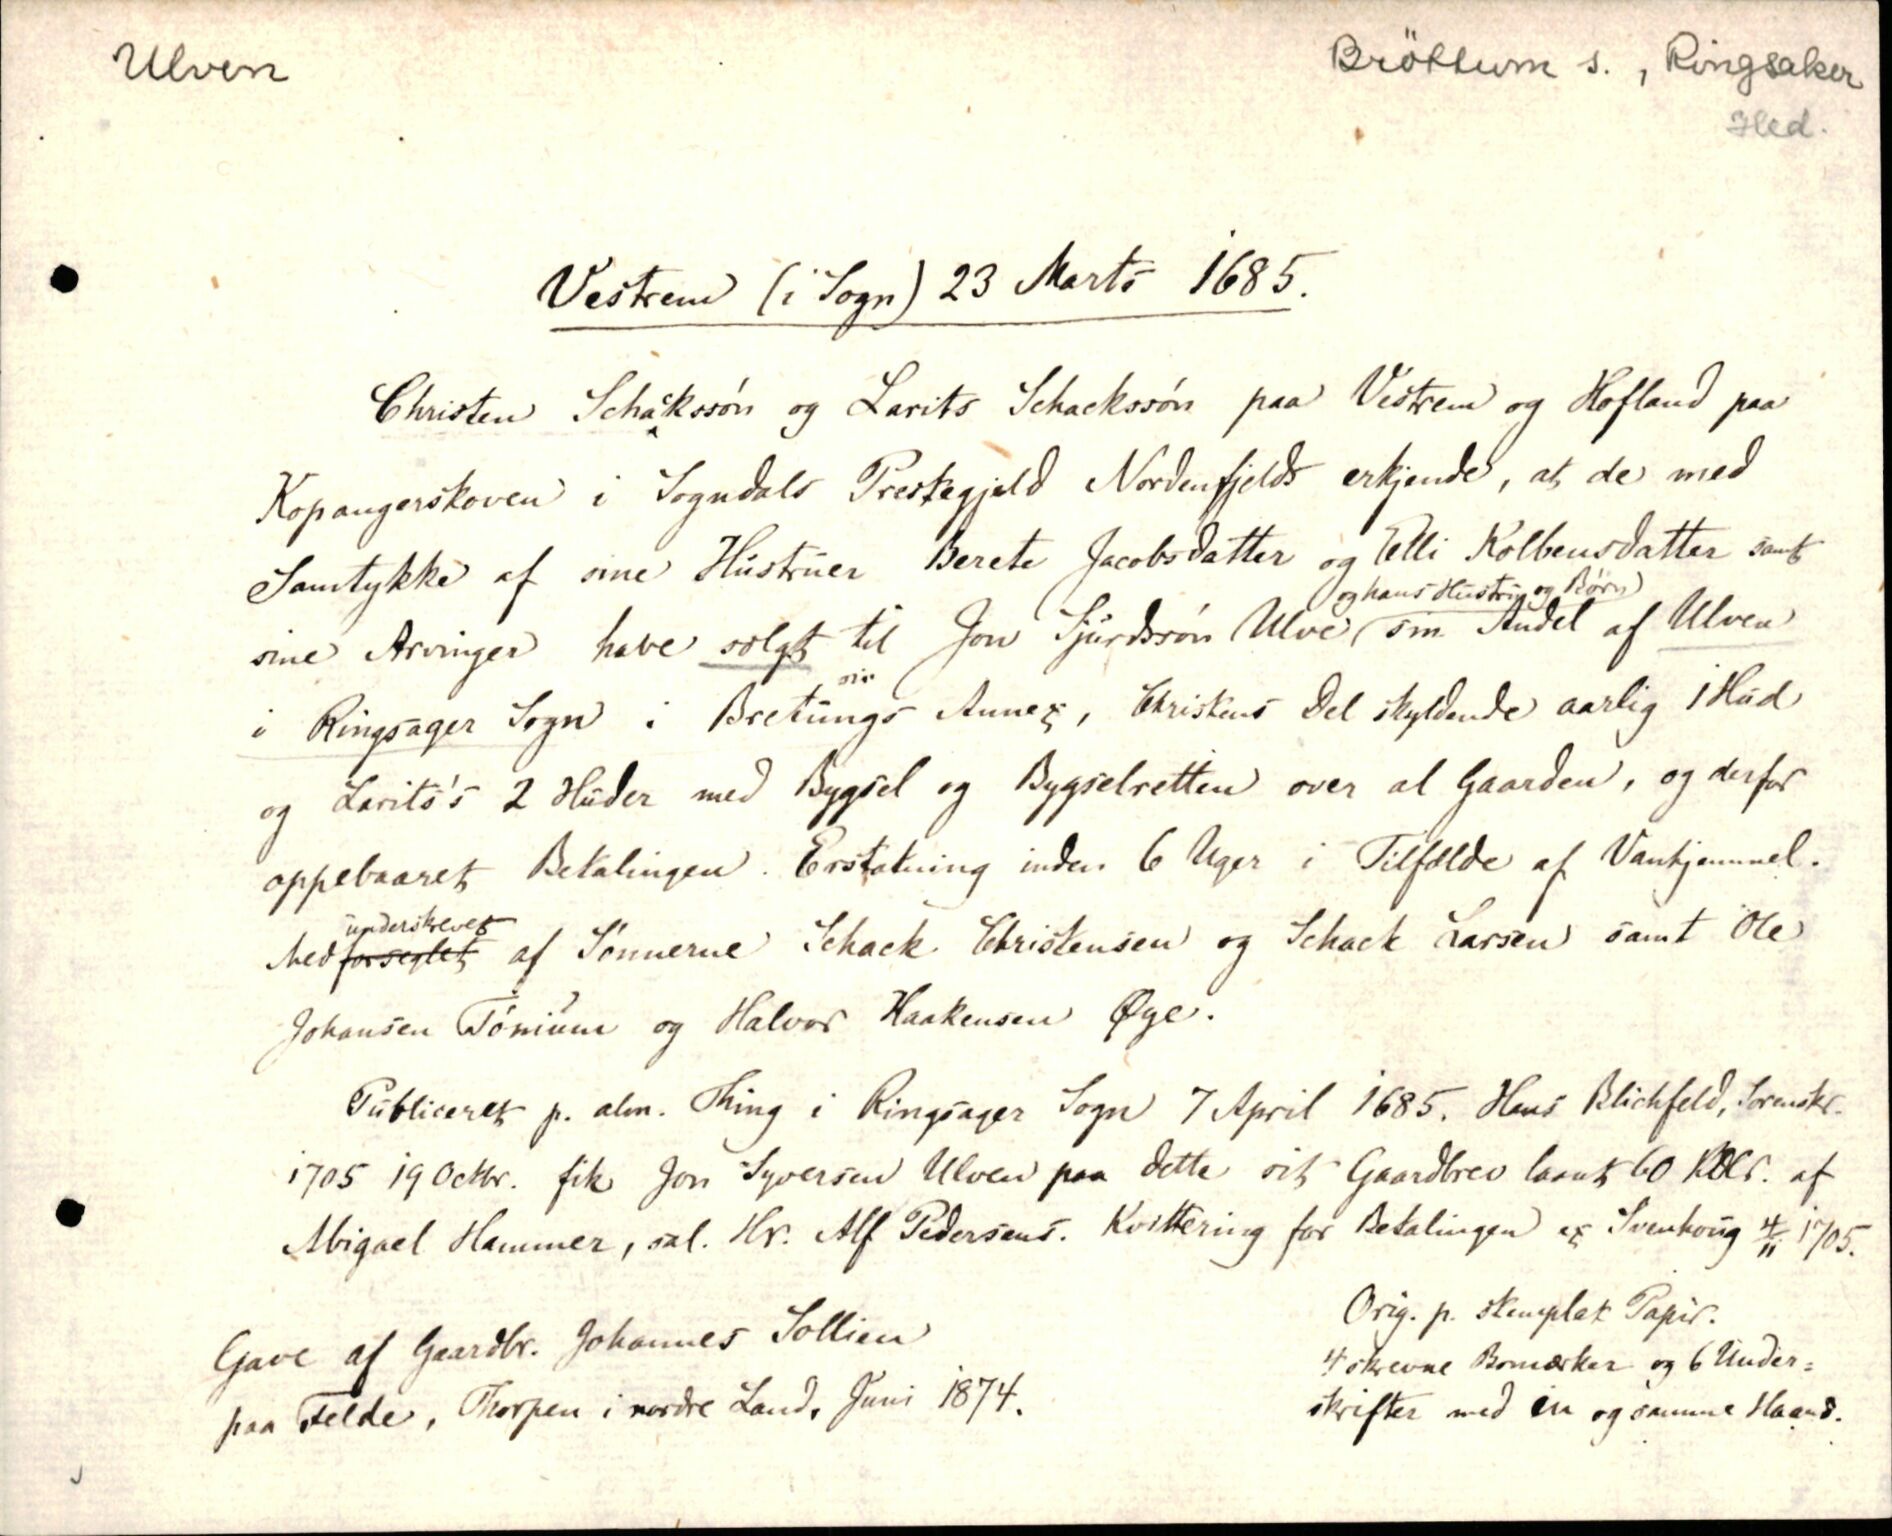 Ulven
Bröttum s., Ringsaker
Hed.
Vestrem (i Sogn) 23 Marts 1685.
Christen Schackssón og Larits Schackssón paa Vestrem og Hofland paa
Kopangerskoven i Sogndals Prestegjeld Nordenfjelds erkjende, at de med
Samtykke af sine Hustruer Berete Jacobsdatter og Elli Kolbensdatter samt
og hans Hustru og Børn
sine Arvinger have solgt til Jon Sjurdssón Ulve sin Andel af Ulven
i Ringsager Sogn i Bretungs Annex, Christens Del skyldende aarlig 1 Hud
og Larits's 2 Huder med Bygsel og Bygselretten over al Gaarden, og derfor
oppebaaret Betalingen. Erstatning inden 6 Uger i Tilfælde af Vanhjemmel.
underskrevet
Medforseglet af Sønnerne Schack Christensen og Schack Larsen samt Ole
Johansen Tónium og Halvor Haakensen Øye.
Publiceret p. alm. Thing i Ringsager Sogn 7 April 1685. Hans Blichfeld, Sorenskr.
1705 19 Octbr. fik Jon Syversen Ulven paa dette sit Gaardbrev laant 60 Rdlr. af
Abigael Hammer, sal. Hr. Alf Pedersens. Kvittering for Betalingen ex Svenhoug 4/11 1705.
Orig. p. stemplet Papir.
4 skrevne Bomærker og 6 Under=
skrifter med en og samme Haand.
Gave af Gaardbr. Johannes Sollien
paa Felde, Thorpen i nordre Land, Juni 1874.